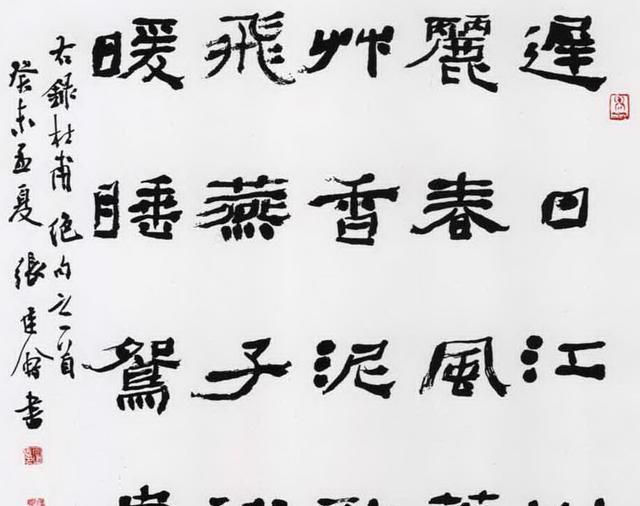 遲日江
麗春風
艸香泥
飛燕子
暖睡鴛
右錄杜甫絕句之一首
癸未孟夏 張建會書